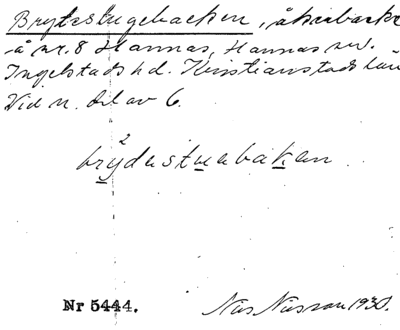 Brytestugebacken, åkerbacke
å nr. 8 Hannas, Hannas sn.
Ingelstads hd. Kristianstads län
Vid n. del av 6.
2
brydastuabakan
Nr 5444.
Nils Nilsson 1930.